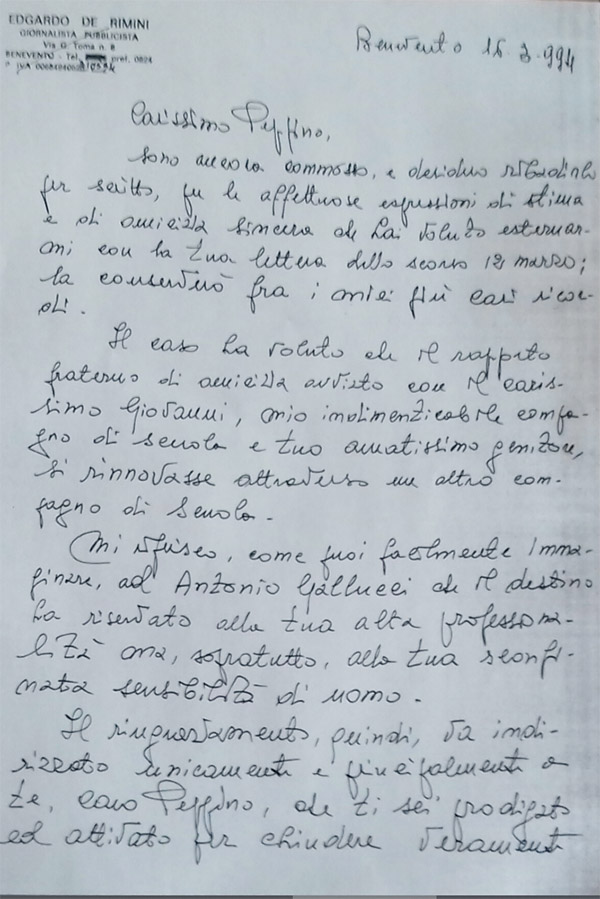 EDGARDO DE RIMINI
GIORNALISTA PUBBLICISTA
Via G. Toma n. 8
BENEVENTO - Tel. pref. 0824
P. IVA
Benevento 16.3.994
Carissimo Peppino,
sono ancora commosso, e desidero ribadirlo
per scritto, per le affettuose espressioni di stima
e di amicizia sincera che hai voluto esternar-
mi con la tua lettera dello scorso 12 marzo;
la conserverò fra i miei più cari ricor-
di.
Il caso ha voluto che il rapporto
fraterno di amicizia avviato con il caris-
simo Giovanni, mio indimenticabile compa-
gno di scuola e tuo amatissimo genitore,
si rinnovasse attraverso un altro com-
pagno di scuola.
Mi riferisco, come puoi facilmente imma-
ginare, ad Antonio Gallucci che il destino
ha riservato alla tua alta professiona-
lità ma, sopratutto, alla tua sconfi-
nata sensibilità di uomo.
Il ringraziamento, quindi, va indi-
rizzato unicamente e principalmente a
te, caro Peppino, che ti sei prodigato
ed attivato per chiudere veramente